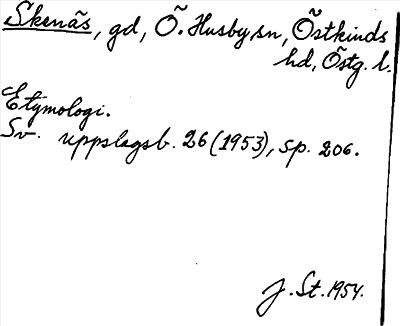 Skenäs, gd, Ö. Husby sn, Östkinds
hd, Östg. l.
Etymologi.
Sv. uppslagsb. 26 (1953), sp. 206.
J. St. 1954.